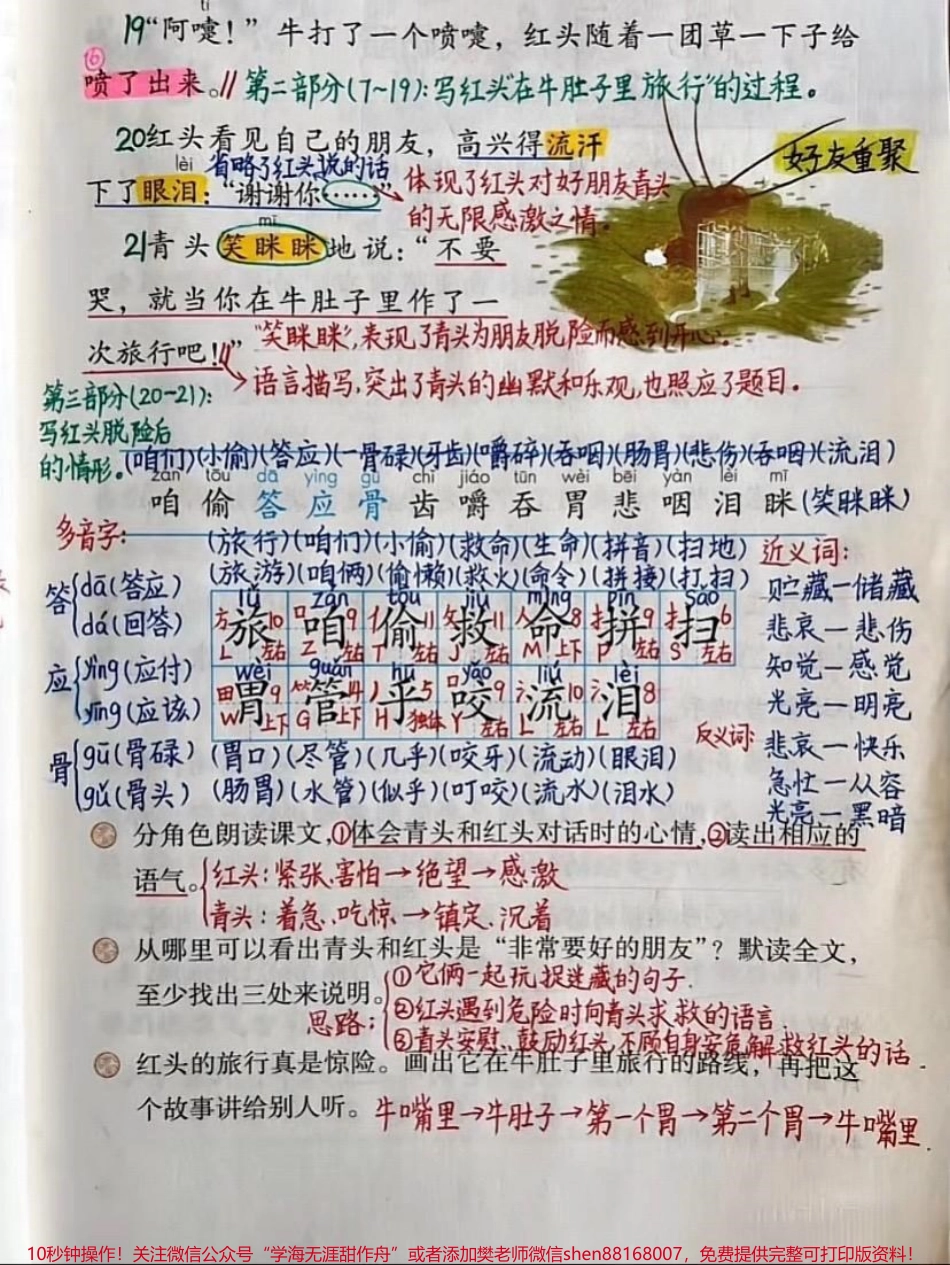 tì
19“阿嚏！” 牛打了一个喷嚏，红头随着一团草一下子给
⑥
喷了出来。// 第二部分(7~19)：写红头“在牛肚子里旅行”的过程。
20红头看见自己的朋友，高兴得流汗
好友重聚
lèi 省略了红头说的话
下了眼泪：“谢谢你……”
体现了红头对好朋友青头
的无限感激之情。
mī
21青头笑眯眯地说：“不要
哭，就当你在牛肚子里作了一
次旅行吧！//”
“笑眯眯”，表现了青头为朋友脱险而感到开心。
语言描写，突出了青头的幽默和乐观，也照应了题目。
第三部分(20-21)：
写红头脱险后
的情形。
(咱们)(小偷)(答应)(一骨碌)(牙齿)(嚼碎)(吞咽)(肠胃)(悲伤)(吞咽)(流泪)
zán tōu dā ying gū chǐ jiáo tūn wèi bēi yàn lèi mī
咱 偷 答 应 骨 齿 嚼 吞 胃 悲 咽 泪 眯 (笑眯眯)
多音字：
(旅行)(咱们)(小偷)(救命)(生命)(拼音)(扫地)
(旅游)(咱俩)(偷懒)(救火)(命令)(拼接)(打扫)
lǚ zán tōu jiù mìng pīn sǎo
方 10 口 9 亻 11 攵 11 人 8 扌 9 扌 6
旅 咱 偷 救 命 拼 扫
L 左右 Z 左右 T 左右 J 左右 M 上下 P 左右 S 左右
wèi guǎn hū yǎo liú lèi
田 9 ⺮ 14 丿 5 口 9 氵 10 氵 8
胃 管 乎 咬 流 泪
W 上下 G 上下 H 独体 Y 左右 L 左右 L 左右
(胃口)(尽管)(几乎)(咬牙)(流动)(眼泪)
(肠胃)(水管)(似乎)(叮咬)(流水)(泪水)
答 dā(答应)
dá(回答)
应 yìng(应付)
yīng(应该)
骨 gū(骨碌)
gǔ(骨头)
近义词：
贮藏—储藏
悲哀—悲伤
知觉—感觉
光亮—明亮
反义词：
悲哀—快乐
急忙—从容
光亮—黑暗
分角色朗读课文，①体会青头和红头对话时的心情，②读出相应的
语气。
红头：紧张、害怕→绝望→感激
青头：着急、吃惊→镇定、沉着
从哪里可以看出青头和红头是“非常要好的朋友”？默读全文，
至少找出三处来说明。
思路：
①它俩一起玩捉迷藏的句子.
②红头遇到危险时向青头求救的语言.
③青头安慰、鼓励红头，不顾自身安危解救红头的话.
红头的旅行真是惊险。画出它在牛肚子里旅行的路线，再把这
个故事讲给别人听。
牛嘴里→牛肚子→第一个胃→第二个胃→牛嘴里.
10秒钟操作！关注微信公众号“学海无涯甜作舟”或者添加樊老师微信shen88168007，免费提供完整可打印版资料！